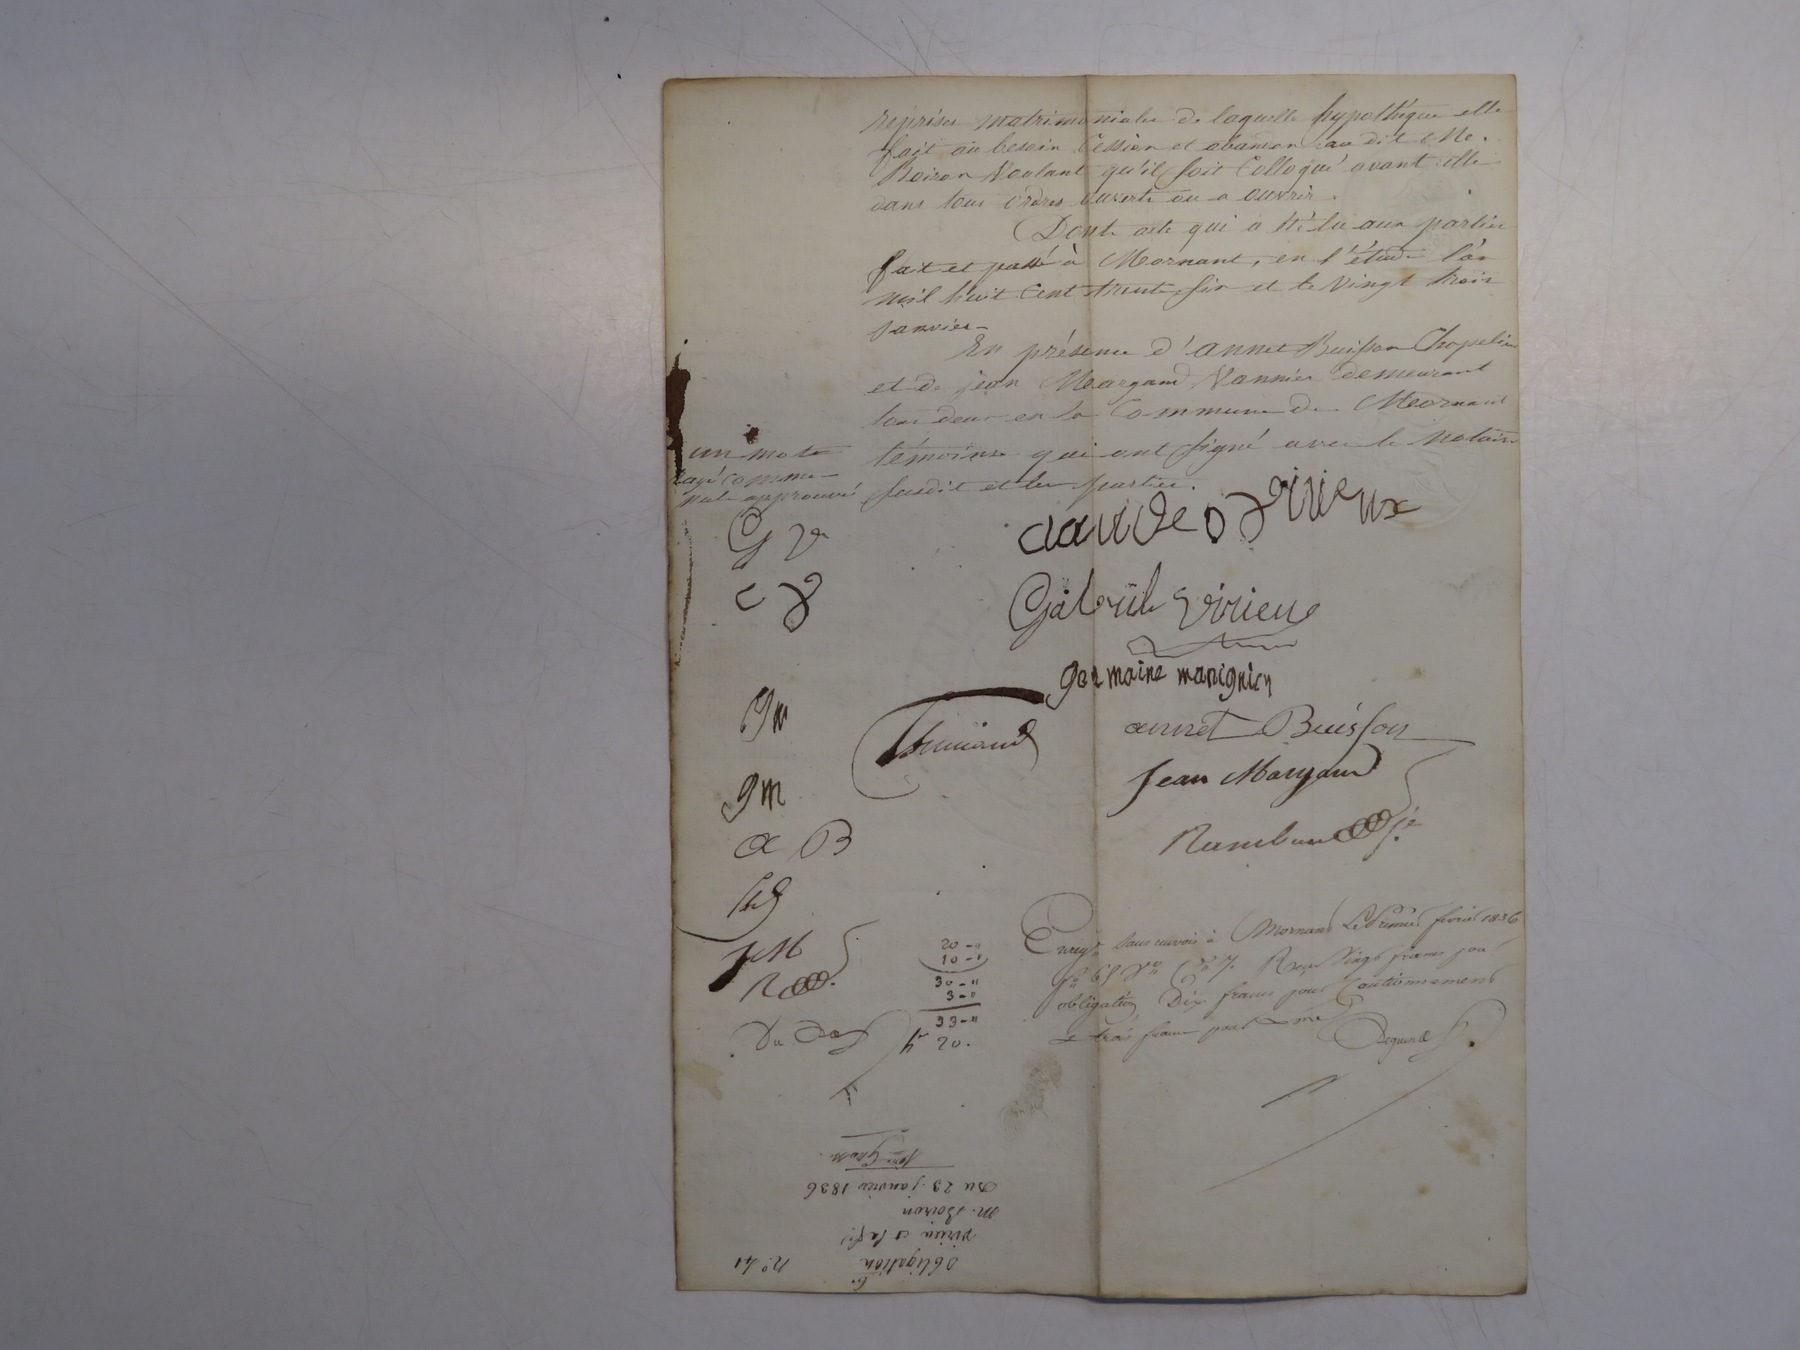 reprises matrimoniales de laquelle hypothèque elle
fait au besoin Cession et abandon au dit Me.
Boiron Voulant qu'il soit Colloqué avant elle
dans tous ordres ouverts ou a ouvrir.
Dont acte qui a été lu aux parties
fait et passé à Mornant, en l'étude l'an
mil huit Cent trente six et le Vingt trois
janvier
En présence d'annet Buisson Chapelier
et de jean Margand Vannier demeurant
tous deux en la Commune de Mornant
témoins qui ont signé avec le Notaire
susdit et les parties.
un mot
rayé comme
nul approuvé
G V
C V
gm
gm
a B
JM
R
claude virieux
Gabriel Virieu
germaine manignien
annet Buisson
Jean Margand
20-"
10-"
30-"
3-"
33-"
20.
Enreg. sans renvois à Mornant Le Premier février 1836
Reçu Vingt francs pour
obligation Dix francs pour Cautionnement
et trois francs pour
n° 41
obligation
virieu et sa f.
M. Boiron
Du 23 janvier 1836